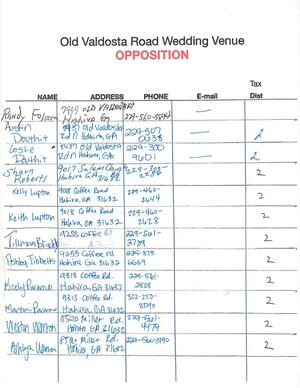 Old Valdosta Road Wedding Venue
OPPOSITION
Tax
NAME ADDRESS PHONE E-mail Dist
Randy 7999 OLD VALDOSTA
Hahira Ga
Austin 8437 Old Valdosta 229-507
Douthit Rd N Hahira, GA 0638 — 2
Leslie 8437 Old Valdosta 229-300
Douthit Rd N Hahira, GA 9601 — 2
Shawn 9017 Salem Church
Roberts Hahira GA 31632 2
Kelly Lupton 9018 Coffee Road 229-460-
Hahira, GA 31632 2644 2
Keith Lupton 9018 Coffee Road 229-460-
Hahira, GA 31632 2628 2
9255 Coffee Rd 229-561-
2789 2
Ashley Tibbetts 9255 Coffee rd
Hahira GA 31632 2
9313 Coffee Rd. 229-561-
Hahira, GA 31632 2888 2
9313 Coffee Rd. 302-250-
Hahira, GA 31632 8090 2
8520 Miller Rd. 229-561-
Hahira, GA 31632 4479 2
Miller Rd.
Hahira, GA 31632 2